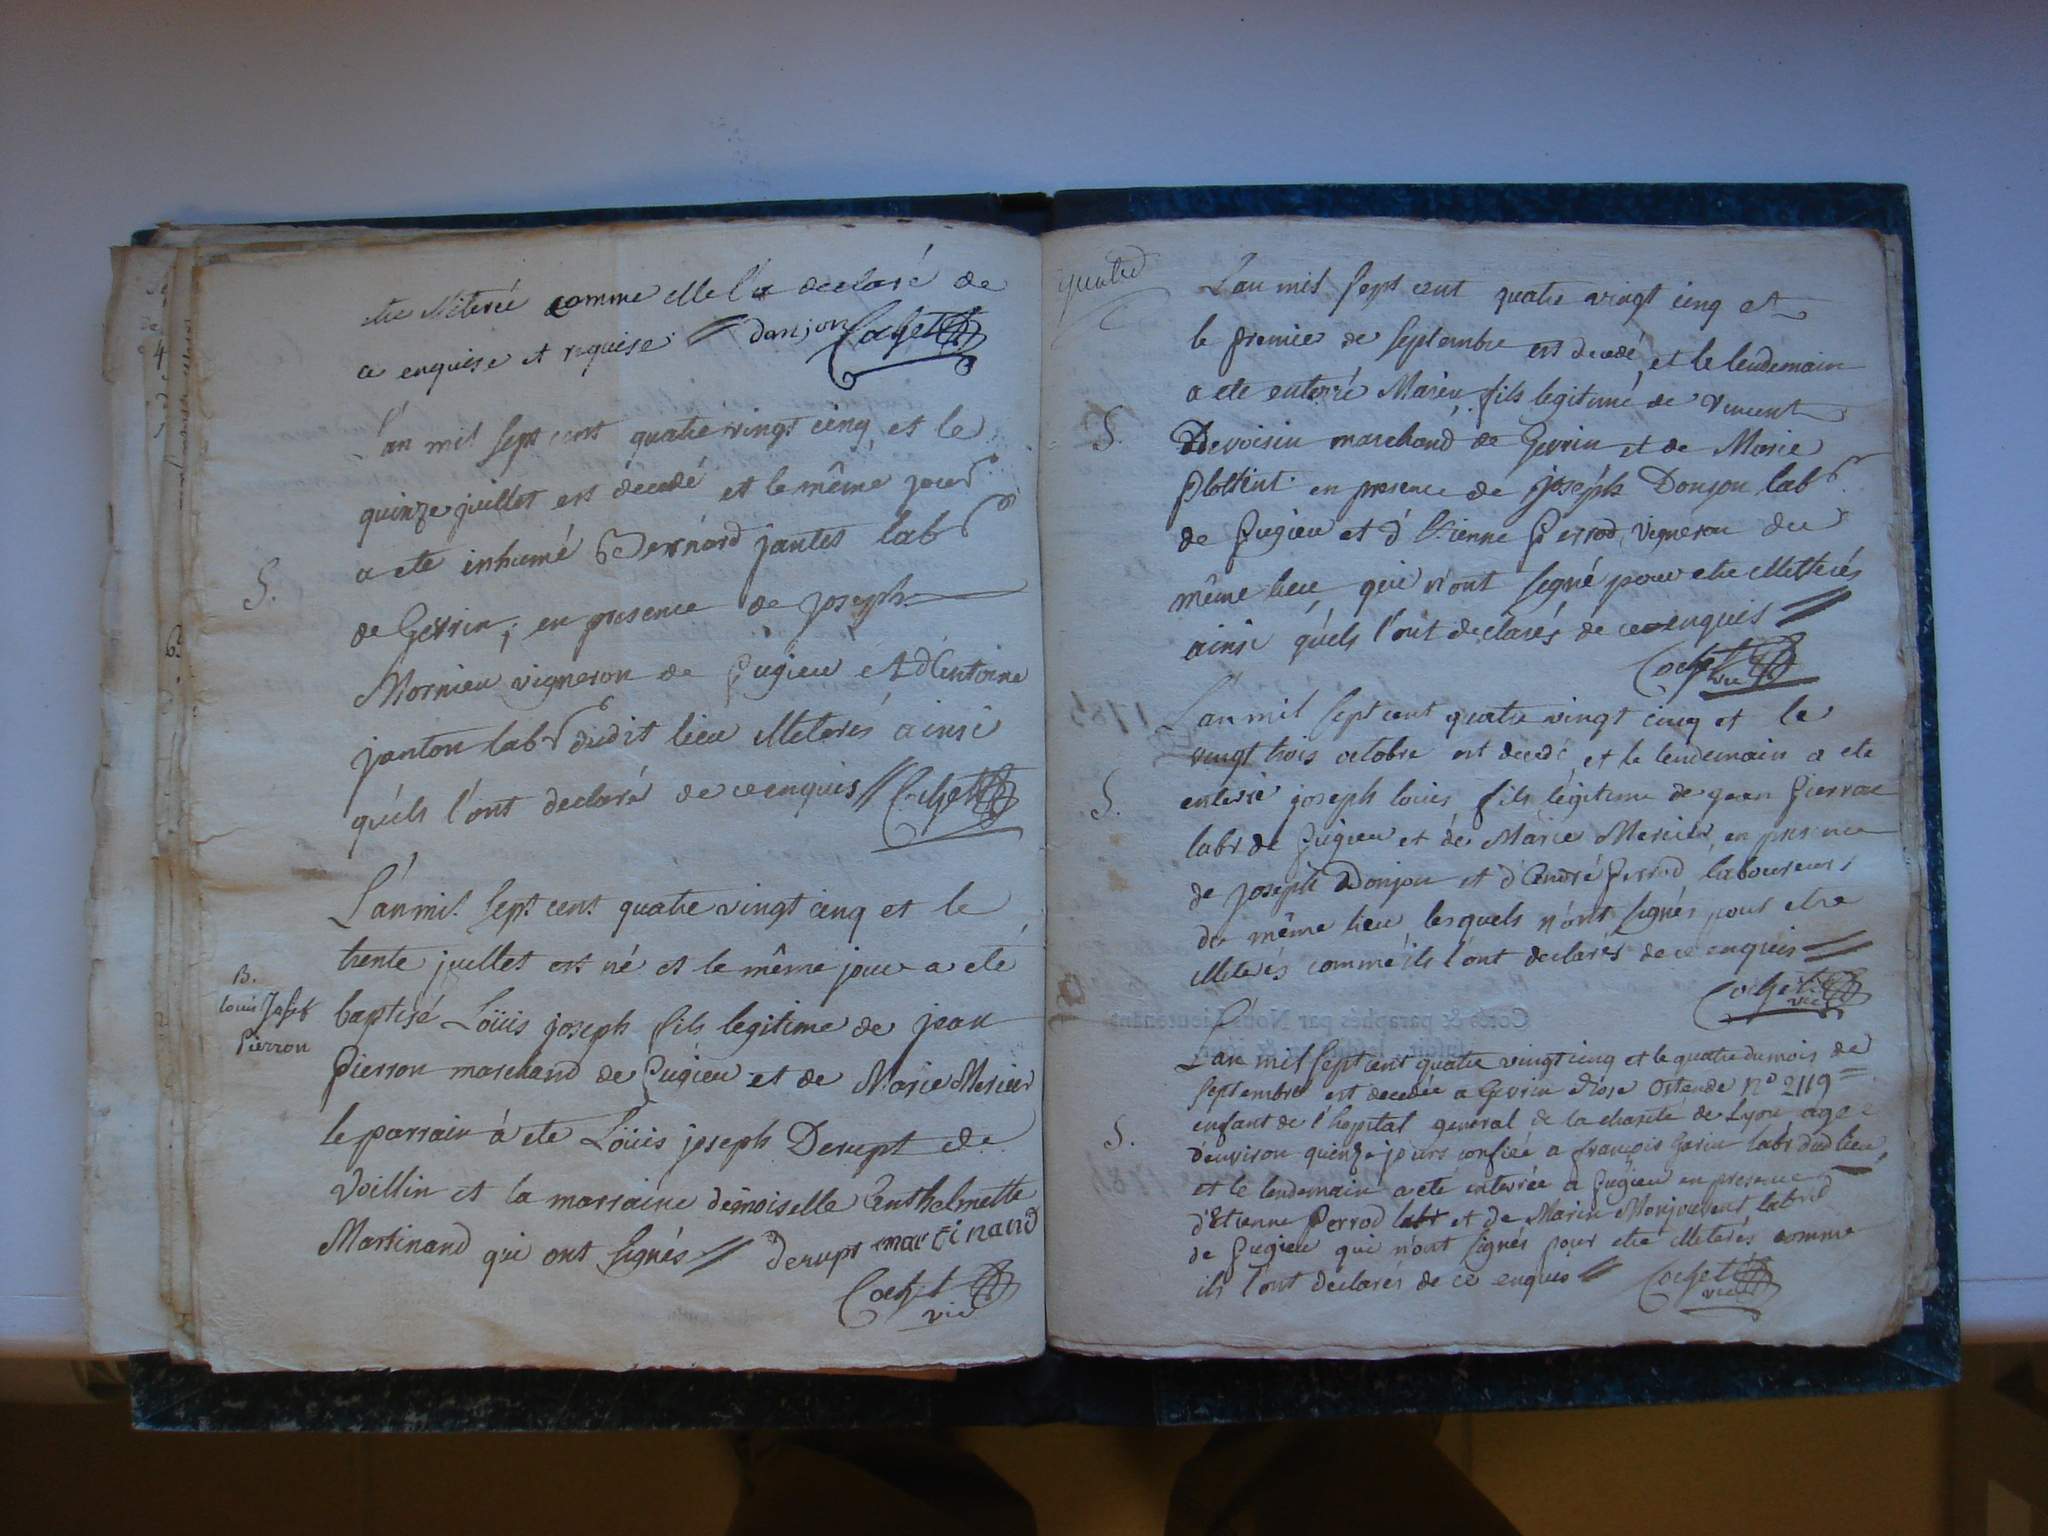 etre illiterée comme elle l'a declaré de
ce enquise et requise // donjon Cochet
L'an mil sept cent quatre vingt cinq et le
quinze juillet est décedé et le même jour
a ete inhumé Bernard jantet labr
S.
de Gevrin; en presence de joseph
Mornieu vigneron de Pugieu et d'Antoine
janton labr dudit lieu illeterés ainsi
qu'ils l'ont declaré de ce enquis // Cochet
L'an mil sept cent quatre vingt cinq et le
trente juillet est né et le même jour a eté
B.
Louis Josef
Pierron
baptisé Loüis joseph fils legitime de jean
Pierron marchand de Pugieu et de Marie Mercier
le parrain à ete Loüis joseph Derupt de
Voillin et la marraine demoiselle Anthelmette
Martinand qui ont signés // derupt martinand
Cochet
vic
quatre
L'an mil sept cent quatre vingt cinq et
le premier de septembre est decedé et le lendemain
a ete enterré Marin fils legitime de Vincent
S.
Devoisin marchand de Gevrin et de Marie
en presence de joseph Donjon labr
de Pugieu et d'Etienne Perrod, vigneron du
même lieu qui n'ont signé pour etre illetterés
ainsi qu'els l'ont declarés de ce enquis //
Cochet vic
L'an mil sept cent quatre vingt cinq et le
vingt trois octobre est decedé et le lendemain a ete
S.
enterré joseph louis fils légitime de jean Pierron
labr de Pugieu et de Marie Mercier, en presence
de joseph Donjon et d'André Perrod laboureurs
du même lieu, lesquels n'ont signés pour etre
illeterés comme ils l'ont declarés de ce enquis //
Cochet
vic
L'an mil sept cent quatre vingt cinq et le quatre du mois de
septembre est decedée a Gevrin Rose Ostende n° 2119
enfant de l'hopital general de la charite de Lyon agée
S.
d'environ quinze jours confiée a françois Garin labr dud lieu,
et le lendemain a eté enterrée a Pugieu en presence
d'Etienne Perrod labr et de Marin Monjouvent labrs
de Pugieu qui n'ont signés pour etre illeterés comme
ils l'ont declarés de ce enquis // Cochet
vic